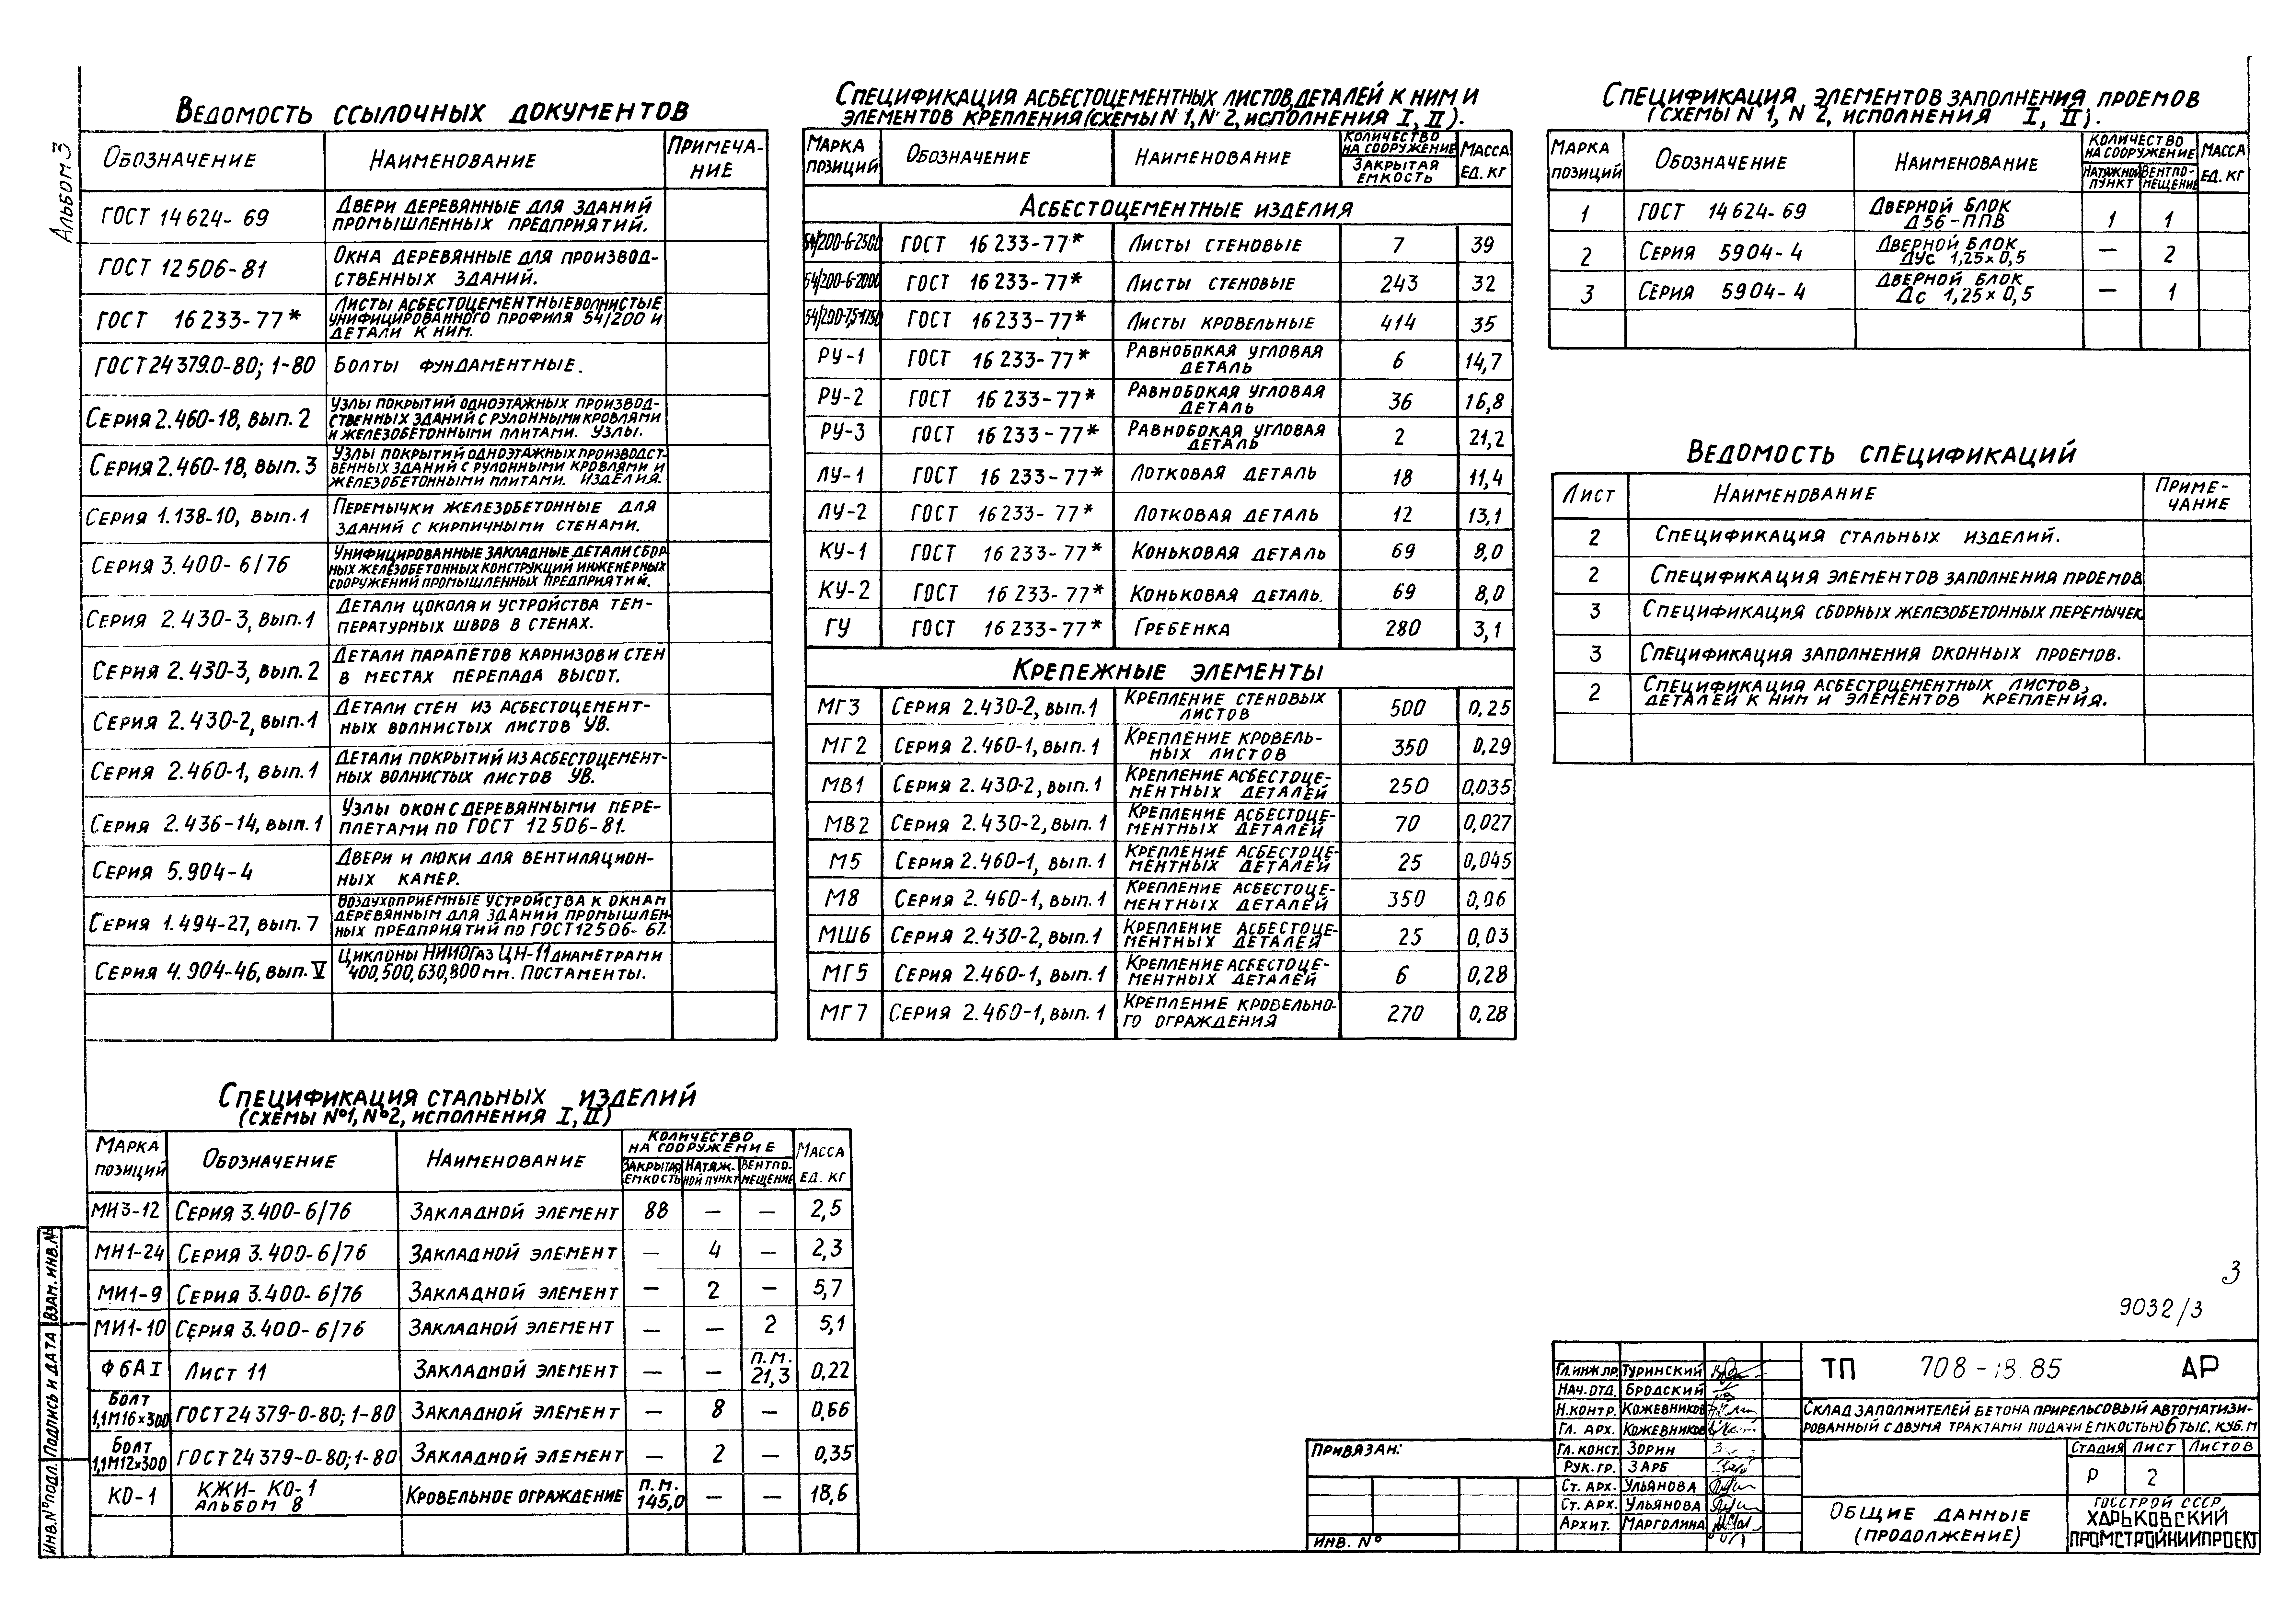 Альбом 3
Ведомость ссылочных документов
Обозначение | Наименование | Примечание
ГОСТ 14624-69 | Двери деревянные для зданий промышленных предприятий.
ГОСТ 12506-81 | Окна деревянные для производственных зданий.
ГОСТ 16233-77* | Листы асбестоцементные волнистые унифицированного профиля 54/200 и детали к ним.
ГОСТ 24379.0-80; 1-80 | Болты фундаментные.
Серия 2.460-18, вып. 2 | Узлы покрытий одноэтажных производственных зданий с рулонными кровлями и железобетонными плитами. Узлы.
Серия 2.460-18, вып. 3 | Узлы покрытий одноэтажных производственных зданий с рулонными кровлями и железобетонными плитами. Изделия.
Серия 1.138-10, вып. 1 | Перемычки железобетонные для зданий с кирпичными стенами.
Серия 3.400-6/76 | Унифицированные закладные детали сборных железобетонных конструкций инженерных сооружений промышленных предприятий.
Серия 2.430-3, вып. 1 | Детали цоколя и устройства температурных швов в стенах.
Серия 2.430-3, вып. 2 | Детали парапетов карнизов и стен в местах перепада высот.
Серия 2.430-2, вып. 1 | Детали стен из асбестоцементных волнистых листов УВ.
Серия 2.460-1, вып. 1 | Детали покрытий из асбестоцементных волнистых листов УВ.
Серия 2.436-14, вып. 1 | Узлы окон с деревянными переплетами по ГОСТ 12506-81.
Серия 5.904-4 | Двери и люки для вентиляционных камер.
Серия 1.494-27, вып. 7 | Воздухоприемные устройства к окнам деревянным для зданий промышленных предприятий по ГОСТ 12506-67.
Серия 4.904-46, вып. V | Циклоны НИИОГаз ЦН-11 диаметрами 400, 500, 630, 800 мм. Постаменты.
Спецификация асбестоцементных листов, деталей к ним и
элементов крепления (схемы N 1, N 2, исполнения I, II).
Марка позиций | Обозначение | Наименование | Количество на сооружение | Закрытая емкость | Масса ед. кг
Асбестоцементные изделия
54/200-6-2500 | ГОСТ 16233-77* | Листы стеновые | 7 | 39
54/200-6-2000 | ГОСТ 16233-77* | Листы стеновые | 243 | 32
54/200-7,5-1750 | ГОСТ 16233-77* | Листы кровельные | 414 | 35
РУ-1 | ГОСТ 16233-77* | Равнобокая угловая деталь | 6 | 14,7
РУ-2 | ГОСТ 16233-77* | Равнобокая угловая деталь | 36 | 16,8
РУ-3 | ГОСТ 16233-77* | Равнобокая угловая деталь | 2 | 21,2
ЛУ-1 | ГОСТ 16233-77* | Лотковая деталь | 18 | 11,4
ЛУ-2 | ГОСТ 16233-77* | Лотковая деталь | 12 | 13,1
КУ-1 | ГОСТ 16233-77* | Коньковая деталь | 69 | 8,0
КУ-2 | ГОСТ 16233-77* | Коньковая деталь. | 69 | 8,0
ГУ | ГОСТ 16233-77* | Гребенка | 280 | 3,1
Крепежные элементы
МГ3 | Серия 2.430-2, вып. 1 | Крепление стеновых листов | 500 | 0,25
МГ2 | Серия 2.460-1, вып. 1 | Крепление кровельных листов | 350 | 0,29
МВ1 | Серия 2.430-2, вып. 1 | Крепление асбестоцементных деталей | 250 | 0,035
МВ2 | Серия 2.430-2, вып. 1 | Крепление асбестоцементных деталей | 70 | 0,027
М5 | Серия 2.460-1, вып. 1 | Крепление асбестоцементных деталей | 25 | 0,045
М8 | Серия 2.460-1, вып. 1 | Крепление асбестоцементных деталей | 350 | 0,06
МШ6 | Серия 2.430-2, вып. 1 | Крепление асбестоцементных деталей | 25 | 0,03
МГ5 | Серия 2.460-1, вып. 1 | Крепление асбестоцементных деталей | 6 | 0,28
МГ7 | Серия 2.460-1, вып. 1 | Крепление кровельного ограждения | 270 | 0,28
Спецификация элементов заполнения проемов
(схемы N 1, N 2, исполнения I, II).
Марка позиций | Обозначение | Наименование | Количество на сооружение | Натяжной пункт | Вентпомещение | Масса ед. кг
1 | ГОСТ 14624-69 | Дверной блок Д56-ППВ | 1 | 1
2 | Серия 5904-4 | Дверной блок ДУс 1,25×0,5 | — | 2
3 | Серия 5904-4 | Дверной блок Дс 1,25×0,5 | — | 1
Ведомость спецификаций
Лист | Наименование | Примечание
2 | Спецификация стальных изделий.
2 | Спецификация элементов заполнения проемов
3 | Спецификация сборных железобетонных перемычек
3 | Спецификация заполнения оконных проемов.
2 | Спецификация асбестоцементных листов, деталей к ним и элементов крепления.
Спецификация стальных изделий
(схемы №1, №2, исполнения I, II)
Марка позиций | Обозначение | Наименование | Количество на сооружение | Закрытая емкость | Натяжной пункт | Вентпомещение | Масса ед. кг
МИ3-12 | Серия 3.400-6/76 | Закладной элемент | 88 | — | — | 2,5
МН1-24 | Серия 3.400-6/76 | Закладной элемент | — | 4 | — | 2,3
МИ1-9 | Серия 3.400-6/76 | Закладной элемент | — | 2 | — | 5,7
МИ1-10 | Серия 3.400-6/76 | Закладной элемент | — | — | 2 | 5,1
Ф6АI | Лист 11 | Закладной элемент | — | — | п.м. 21,3 | 0,22
Болт 1,1М16×300 | ГОСТ 24379-0-80; 1-80 | Закладной элемент | — | 8 | — | 0,66
Болт 1,1М12×300 | ГОСТ 24379-0-80; 1-80 | Закладной элемент | — | 2 | — | 0,35
КО-1 | КЖИ-КО-1 альбом 8 | Кровельное ограждение | п.м. 145,0 | — | — | 18,6
Инв. № подл. | Подпись и дата | Взам. инв. №
3
9032/3
Привязан:
Инв. №
Гл. инж. пр. Туринский
Нач. отд. Бродский
Н. контр. Кожевников
Гл. арх. Кожевников
Гл. конст. Зорин
Рук. гр. Зарб
Ст. арх. Ульянова
Ст. арх. Ульянова
Архит. Марголина
ТП 708-18.85 АР
Склад заполнителей бетона прирельсовый автоматизи-
рованный с двумя трактами подачи емкостью 6 тыс. куб. м
Стадия | Лист | Листов
Р | 2
Общие данные
(продолжение)
Госстрой СССР
Харьковский
Промстройниипроект